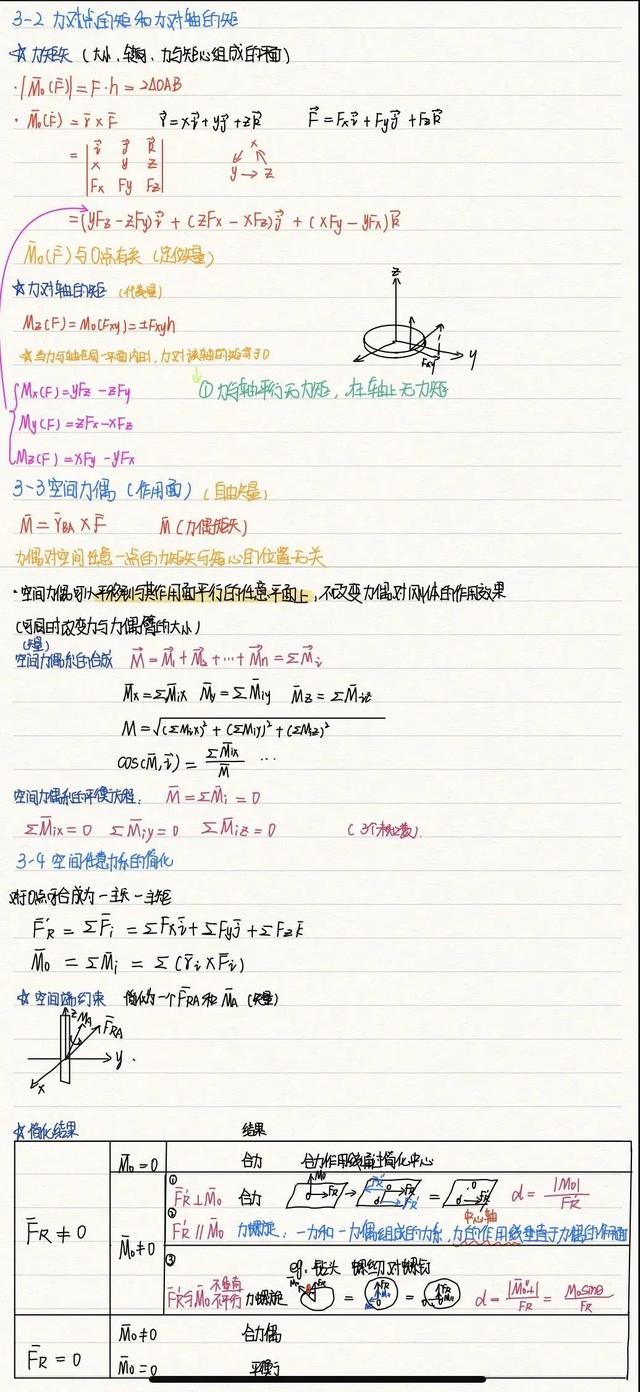 3-2 力对点的矩和力对轴的矩
☆力矩矢 (大小、转向、力与矩心组成的平面)
·|M̄₀(F̄)| = F·h = 2ΔOAB
·M̄₀(F̄) = r̄ × F̄  r⃗ = xi⃗ + yj⃗ + zk⃗  F⃗ = Fxi⃗ + Fyj⃗ + Fzk⃗
= | i⃗ j⃗ k⃗ |
| x y z |
| Fx Fy Fz |
x
y → z
= (yFz - zFy)i⃗ + (zFx - xFz)j⃗ + (xFy - yFx)k⃗
M̄₀(F̄)与O点有关 (定位矢量)
☆力对轴的矩 (代数量)
Mz(F) = M₀(Fxy) = ±Fxyh
☆当力与轴在同一平面内时，力对该轴的矩等于0
z
y
Fxy
Mx(F) = yFz - zFy
①力与轴平行无力矩，在轴上无力矩
My(F) = zFx - xFz
Mz(F) = xFy - yFx
3-3 空间力偶 (作用面) (自由矢量)
M̄ = r̄BA × F̄  M̄ (力偶矩矢)
力偶对空间任意一点的力矩矢与矩心的位置无关
·空间力偶可以平移到与其作用面平行的任意平面上，不改变力偶对刚体的作用效果
(可同时改变力与力偶臂的大小)
(矢量)
空间力偶系的合成 M⃗ = M⃗₁ + M⃗₂ + ··· + M⃗n = ΣM⃗i
M̄x = ΣM̄ix  M̄y = ΣM̄iy  M̄z = ΣM̄iz
M = √(ΣMix)² + (ΣMiy)² + (ΣMiz)²
cos(M̄, i⃗) = ΣM̄ix / M̄ ···
空间力偶系的平衡方程： M̄ = ΣM̄i = 0
ΣM̄ix = 0  ΣM̄iy = 0  ΣM̄iz = 0  (3个未知数).
3-4 空间任意力系的简化
对于O点可合成为一主矢一主矩
F̄'R = ΣF̄i = ΣFxi̅ + ΣFyj̅ + ΣFzk̅
M̄₀ = ΣM̄i = Σ(r̄i × F̄i)
☆空间端约束 简化为一个F̄RA和M̄A (矢量)
z MA F̄RA
y
x
☆简化结果 结果
F̄R ≠ 0
M̄₀ = 0 合力 合力作用线通过简化中心
M̄₀ ≠ 0
① F̄'R ⊥ M̄₀ 合力 d = |M₀| / F'R
中心轴
② F̄'R // M̄₀ 力螺旋：一力和一力偶组成的力系，力的作用线垂直于力偶的作用面
eg. 钻头 螺丝刀对螺钉
③ F̄'R与M̄₀不垂直不平行 力螺旋 d = |M̄₀''| / FR = M₀sinθ / FR
F̄R = 0
M̄₀ ≠ 0 合力偶
M̄₀ = 0 平衡